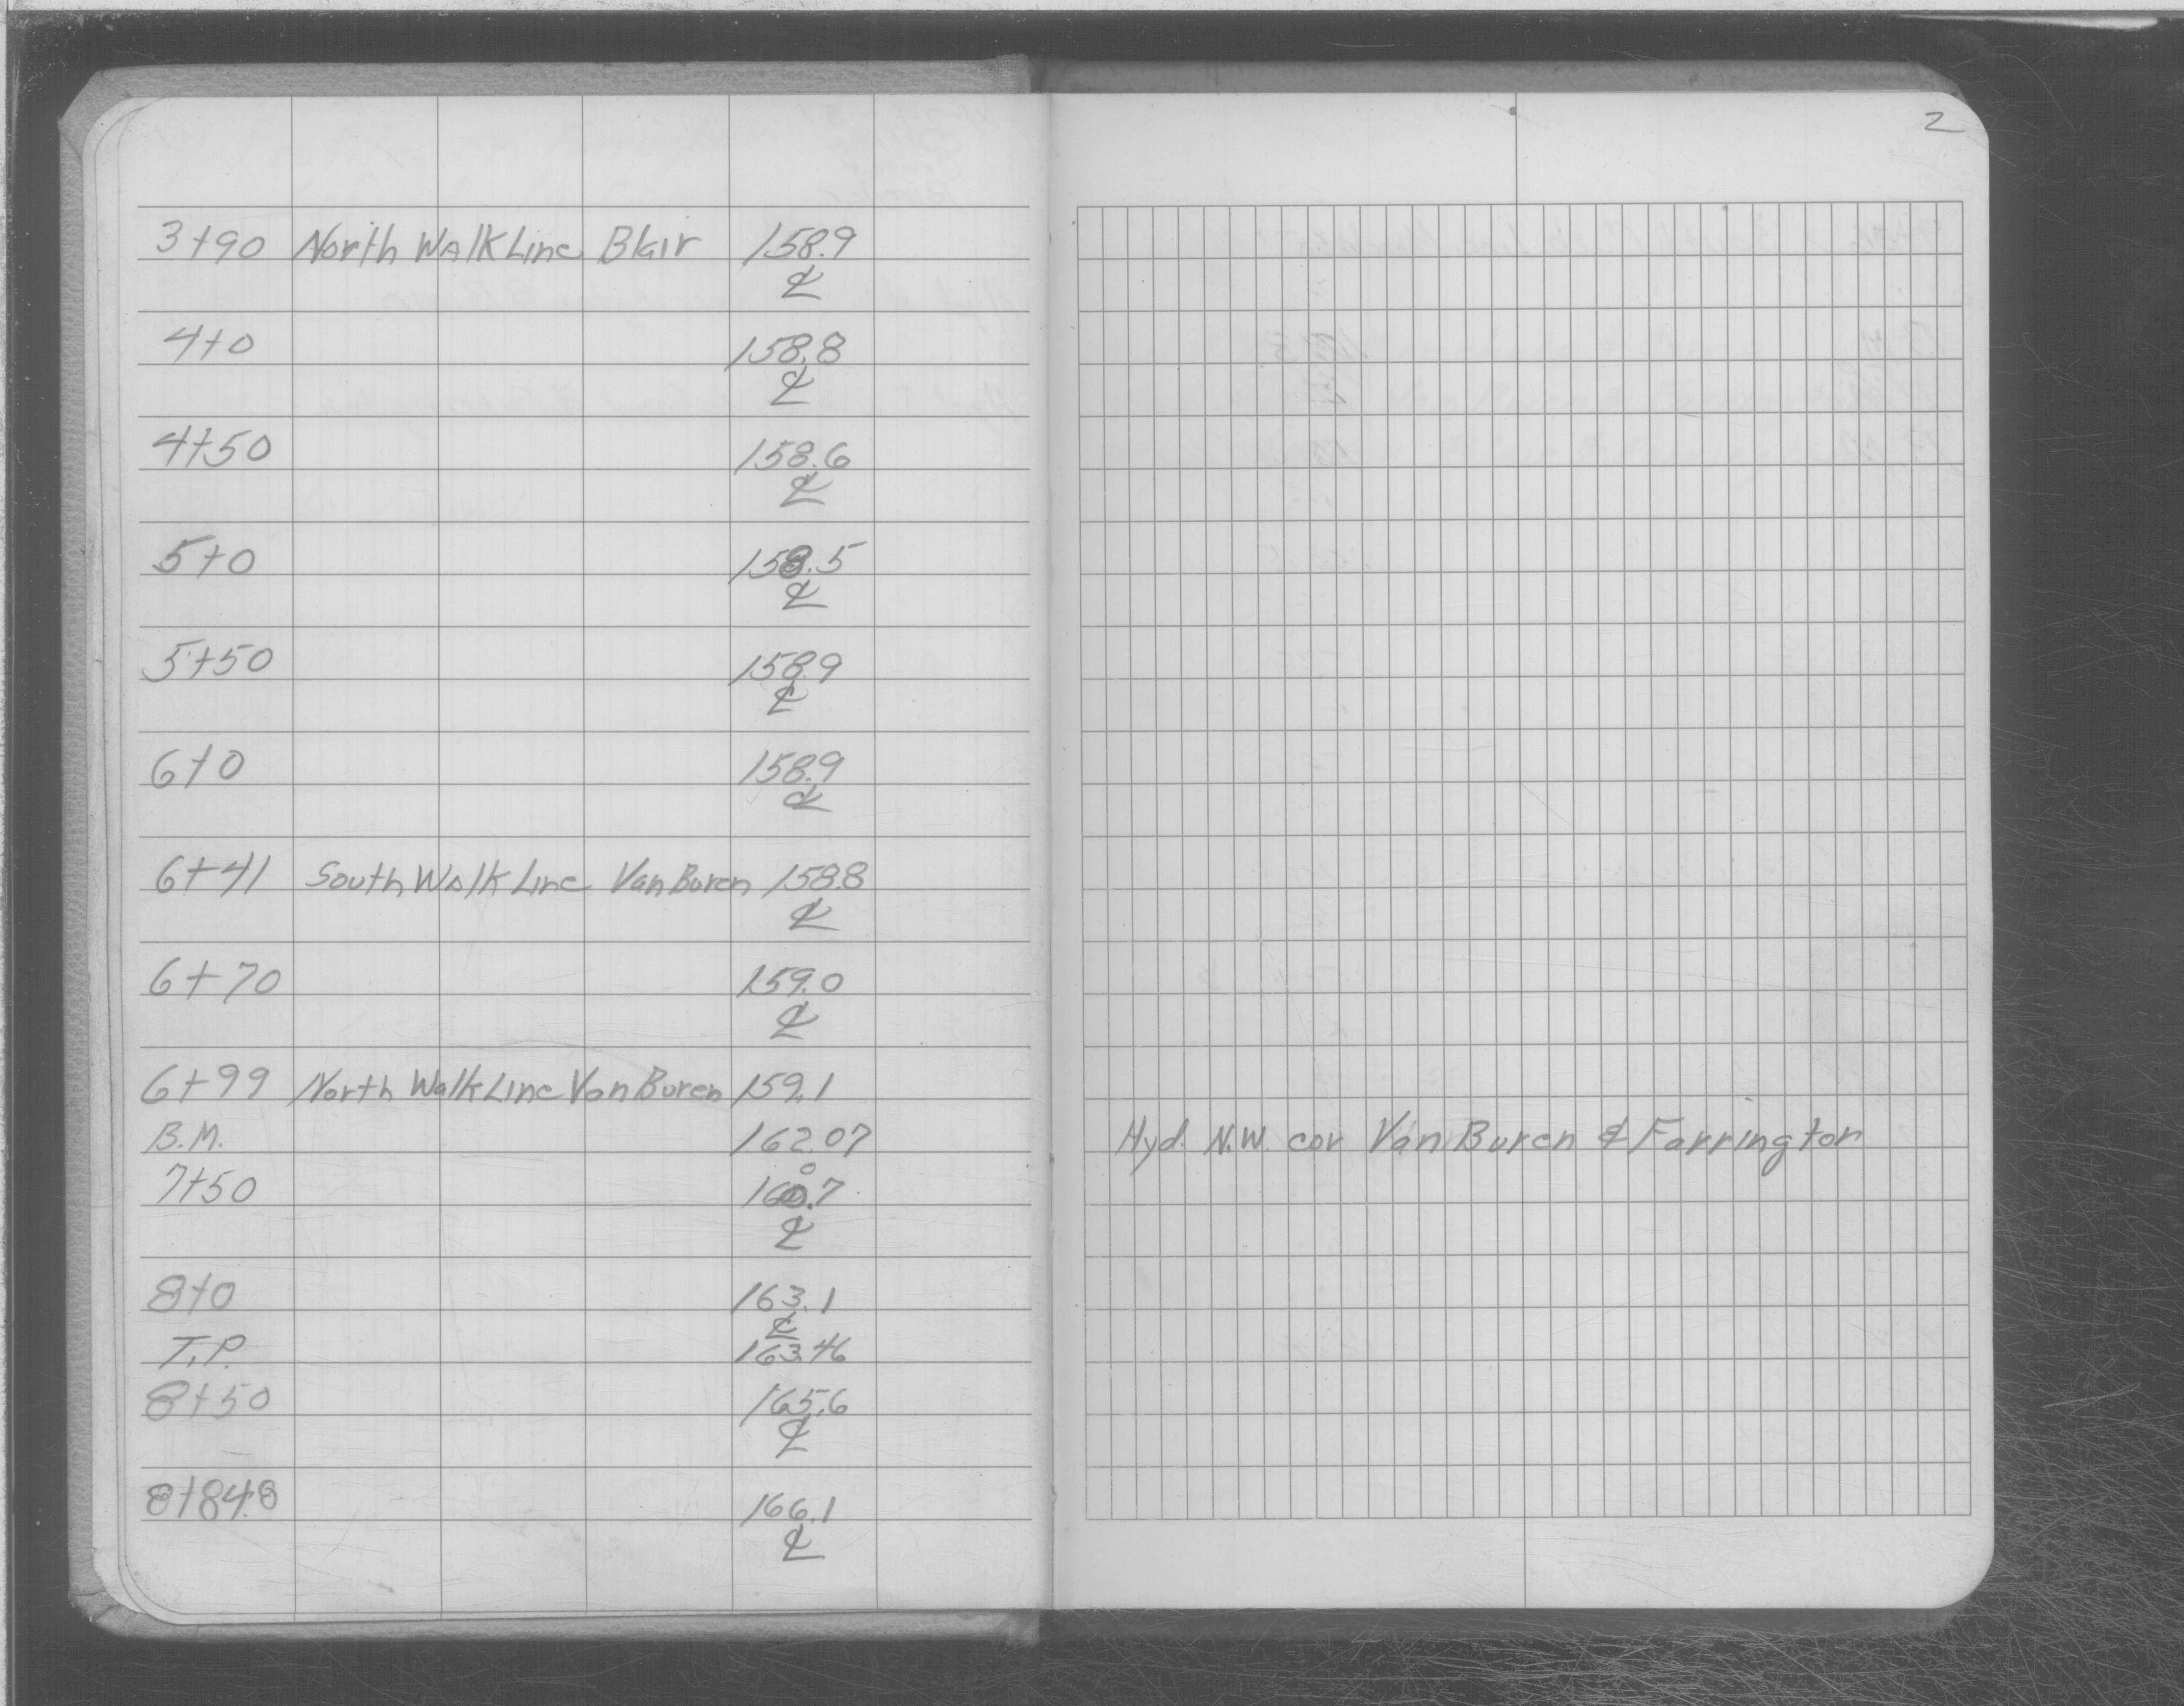 2
3+90 North Walk Line Blair 158.9
℄
4+0 158.8
℄
4+50 158.6
℄
5+0 158.5
℄
5+50 158.9
℄
6+0 158.9
℄
6+41 South Walk Line Van Buren 158.8
℄
6+70 159.0
℄
6+99 North Walk Line Van Buren 159.1
B.M. 162.07 Hyd. N.W. cor Van Buren & Farrington
0
7+50 160.7
℄
8+0 163.1
℄
T.P. 163.46
8+50 165.6
℄
8+84.8 166.1
℄